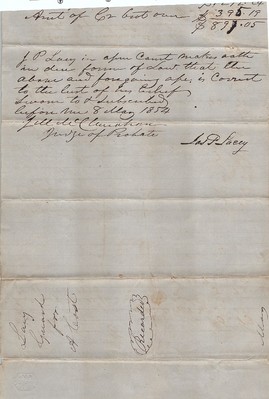 Amt of Cr Cost over $ 395.19
$ 897.05
J P Lacy in open Court makes oath
in due form of Law that the
above and foregoing a/c is Correct
to the best of his belief
Sworn to & Subscribed
before me 8 May 1854
Judge of Probate
Jas P. Lacy
Lacy
Guard
for
A Cost
Recorded
May